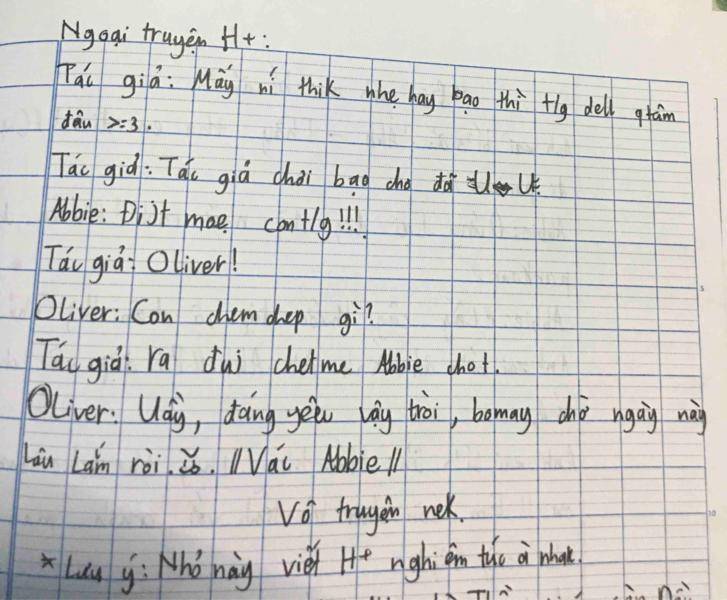 Ngoại truyện H+:
Tác giả: Mấy ní thik nhẹ hay bạo thì t/g dell qtâm
đâu >=3.
Tác giả: Tác giả chơi bạo cho đã U U.
Abbie: Địjt mae con t/g!!!
Tác giả: Oliver!
Oliver: Con chem chep gì?
Tác giả: ra đụj chetme Abbie chot.
Oliver: Uầy, đáng yêu vậy trời, bomay chờ ngày này
lâu lắm rồi. //Vác Abbie//
Vô truyện nek.
* Lưu ý: Nhỏ này viết H+ nghiêm túc à nhak.